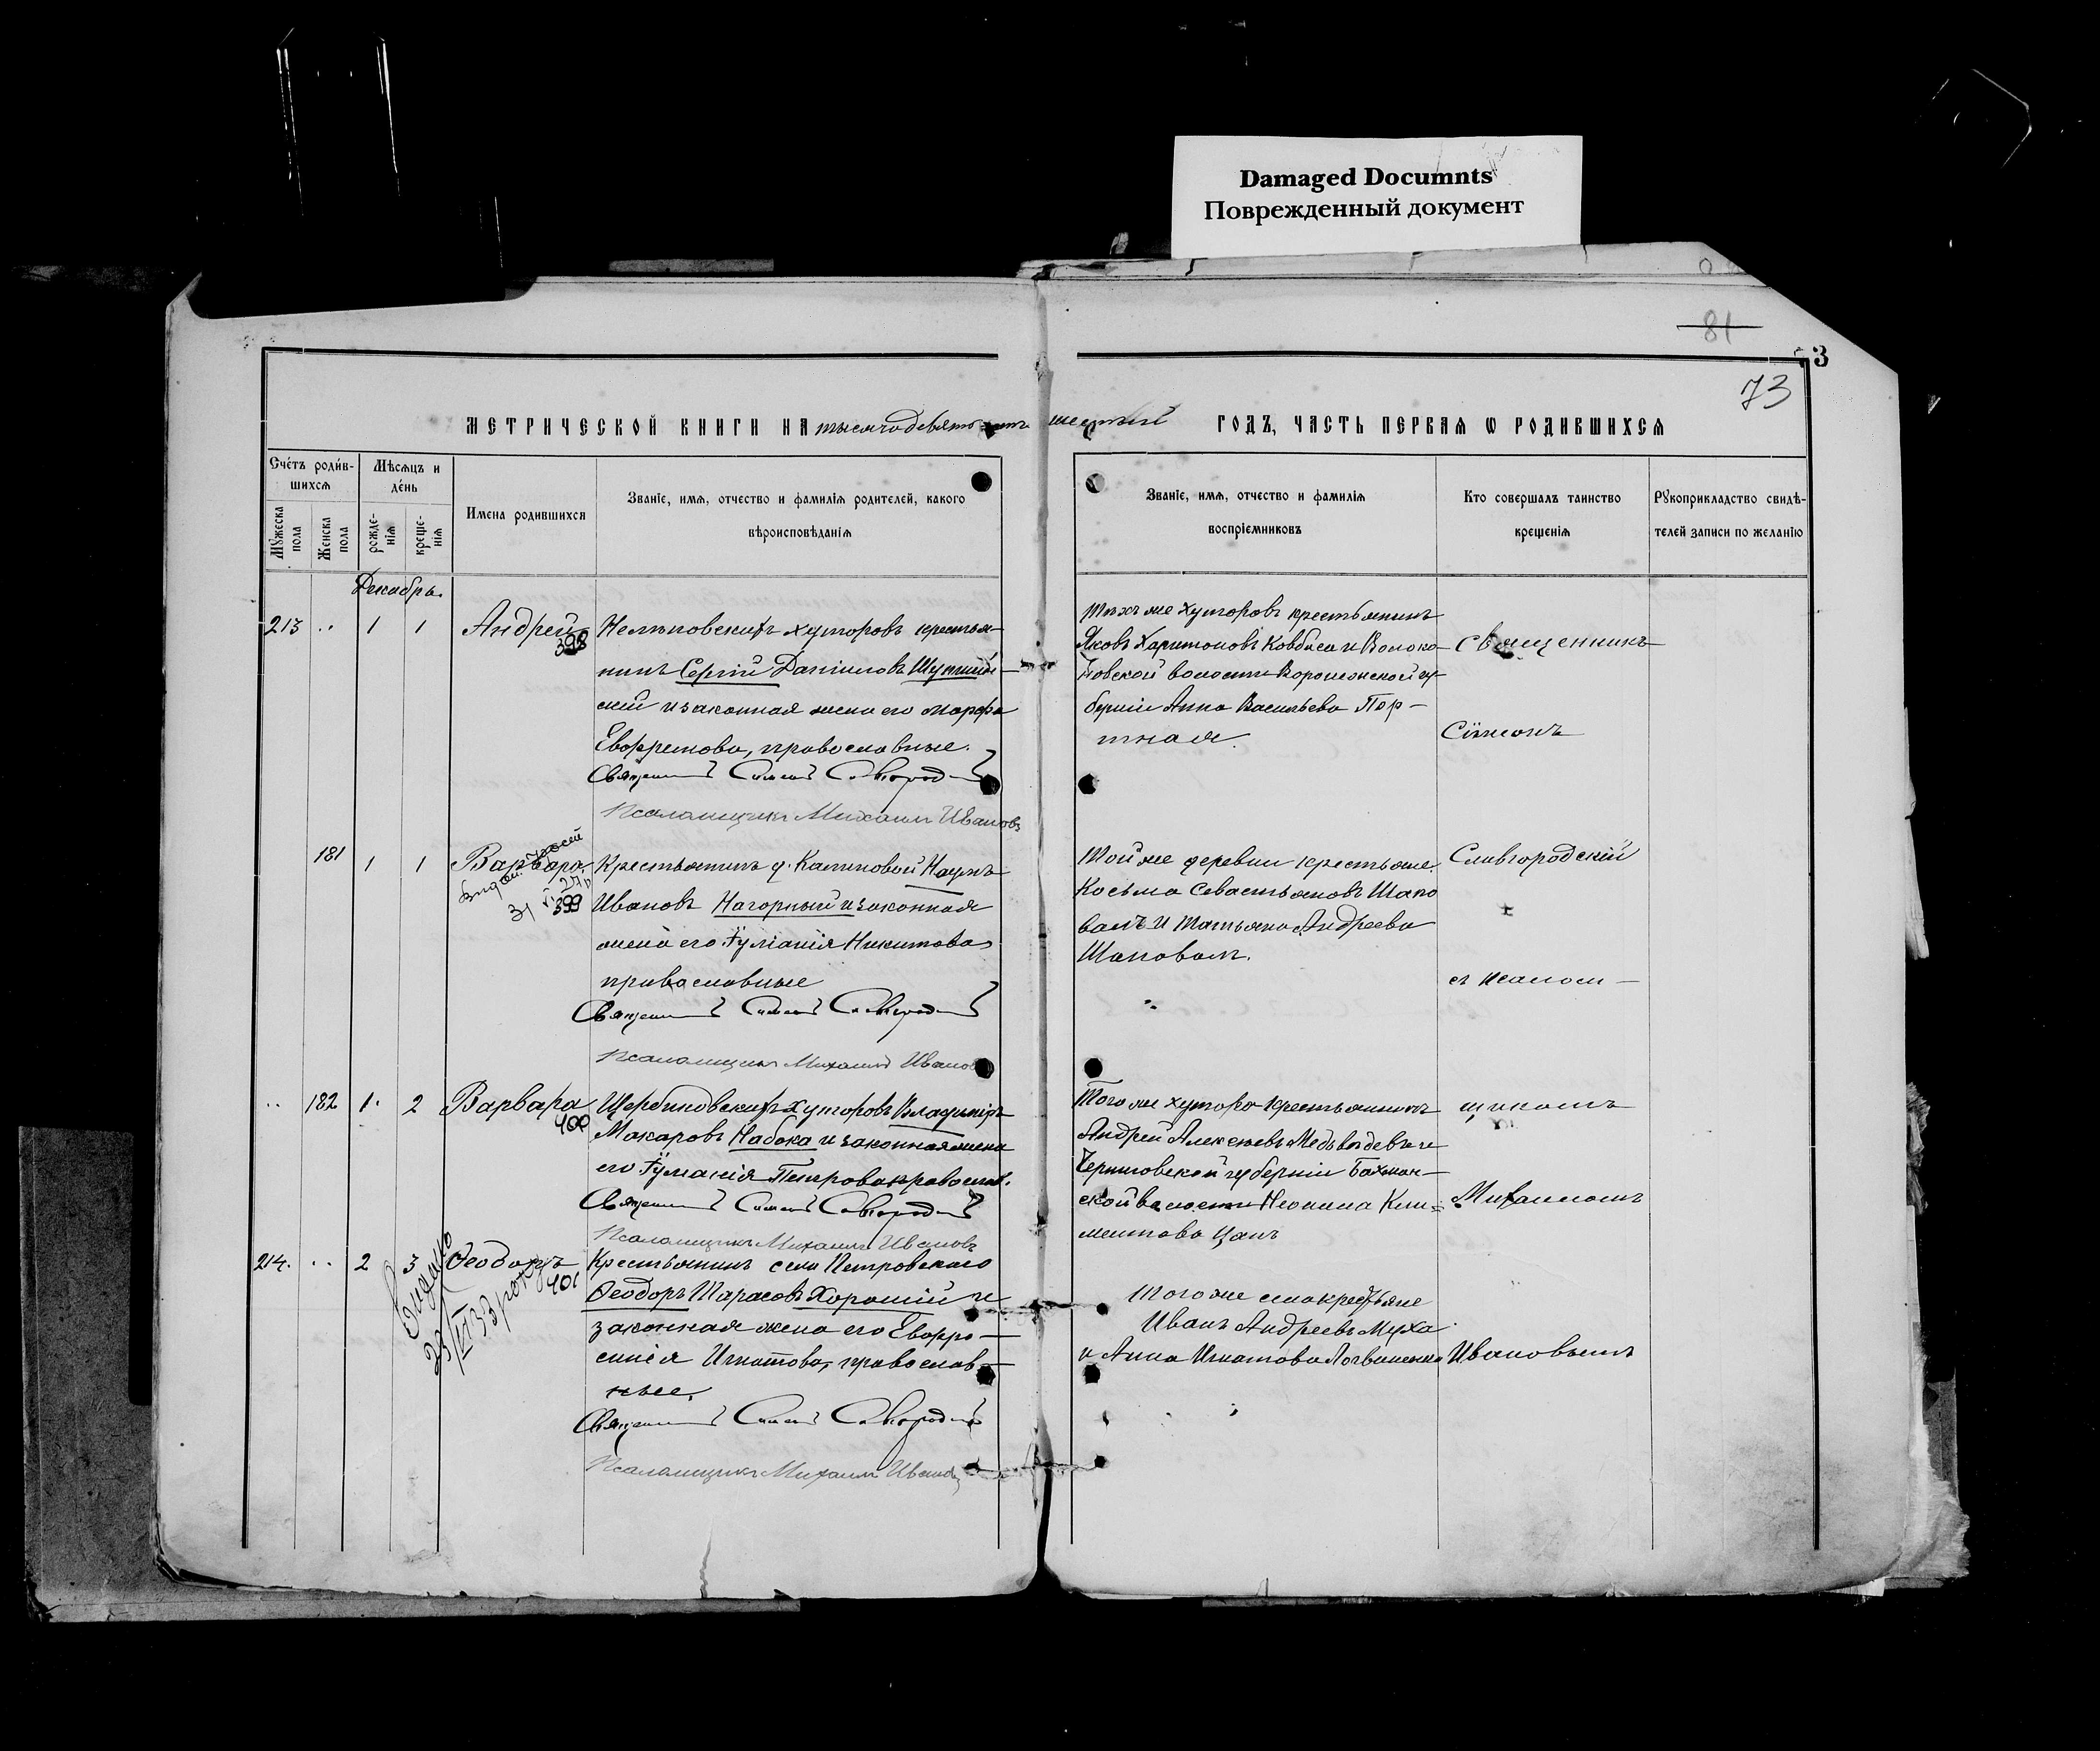 Damaged Documnts
Поврежденный документ
81
3
73
МЕТРИЧЕСКОЙ КНИГИ НА тысяча девятьсотъ шестый ГОДЪ, ЧАСТЬ ПЕРВАЯ Ѡ РОДИВШИХСЯ
Счетъ родив-
шихся
Мѣсяцъ и
день
Мужеска
пола
Женска
пола
рожде-
нія
креще-
нія
Имена родившихся
Званіе, имя, отчество и фамилія родителей, какого
вѣроисповѣданія
Званіе, имя, отчество и фамилія
воспріемниковъ
Кто совершалъ таинство
крещенія
Рукоприкладство свидѣ-
телей записи по желанію
Декабрь.
213 .. 1 1 Андрей
398
Нелѣповскихъ хуторовъ крестья-
нинъ Сергій Даніиловъ
и законная жена его Марфа
Евфремова, православные.
Священникъ Симеонъ Славгородскій
Псаломщикъ Михаилъ Ивановъ
Тѣхъ же хуторовъ крестьянинъ
Яковъ Харитоновъ Ковбаса и Волоко-
новской волости Воронежской гу-
берніи Анна Васильева Пор-
тная.
Священникъ
Сімеонъ
181 1 1 Варвара
399
Крестьянинъ д. Калиновой Наумъ
Ивановъ Нагорный и законная
жена его Іуліанія Никитова
православные
Священникъ Симеонъ Славгородскій
Псаломщикъ Михаилъ Ивановъ
Той же деревни крестьяне
Косьма Севастьяновъ Шапо
валъ и Татьяна Андреева
Шаповалъ.
Славгородскій
съ псалом-
.. 182 1 2 Варвара
400
Щербиновскихъ хуторовъ Владиміръ
Макаровъ Набока и законная жена
его Іуліанія Петрова православ.
Священникъ Симеонъ Славгородскій
Псаломщикъ Михаилъ Ивановъ
Того же хутора крестьянинъ
Андрей Алексѣевъ Медвѣдевъ и
Черниговской губерніи Бахмач-
ской волости Неонила Кли=
ментова Цапъ
щикомъ
Михаиломъ
214. .. 2 3 Ѳеодоръ
401
Видано
Крестьянинъ села Петровского
Ѳеодоръ Тарасовъ Хорошій и
законная жена его Евфро-
синія Игнатова, православ-
ные.
Священникъ Симеонъ Славгородскій
Псаломщикъ Михаилъ Ивановъ
Того же села крестьяне
Иванъ Андреевъ Муха
и Анна Игнатова Логвиненко
Ивановымъ